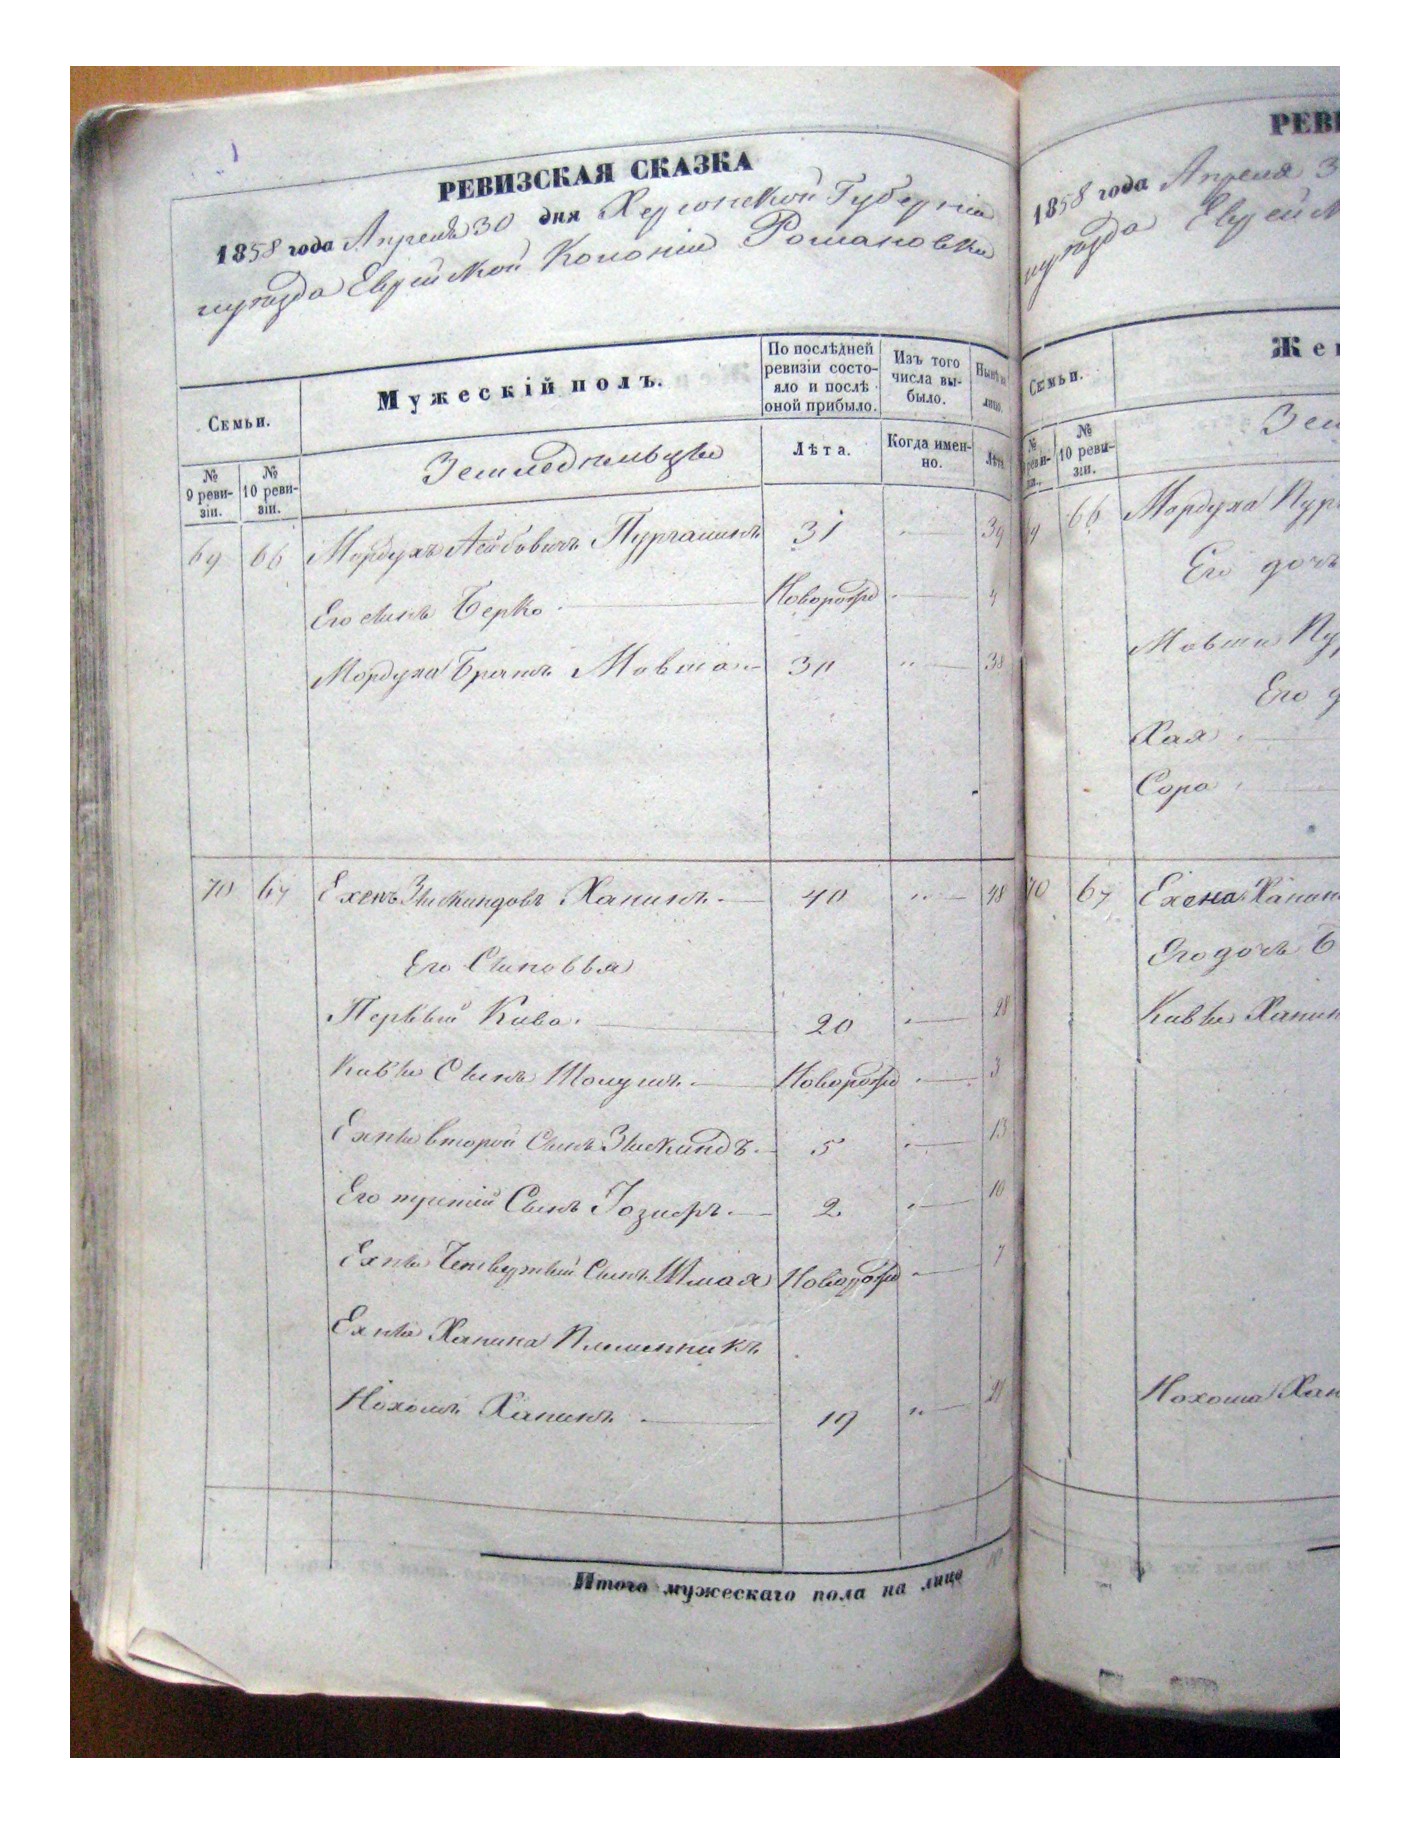 РЕВИЗСКАЯ СКАЗКА
1858 года Апреля 30 дня Херсонской Губерніи
уѣзда Еврейской Колоніи Романовки
Семьи.
Мужескій полъ.
По послѣдней ревизіи состояло и послѣ оной прибыло.
Изъ того числа выбыло.
Нынѣ на лицо.
№ 9 ревизіи.
№ 10 ревизіи.
Земледѣльцы
Лѣта.
Когда именно.
Лѣта.
69 66 Мордухъ Лейбовичъ 31 „ 39
Его сынъ Берко Новорожд „ 4
Мордуха Братъ Мовша 30 „ 38
70 67 Ехенъ Зыскиндовъ Ханинъ 40 „ 48
Его Сыновья
Первый Кива 20 „ 28
Кивы Сынъ Новорожд „ 3
второй Сынъ Зыскиндъ 5 „ 13
Его третій Сынъ 2 „ 10
Четвертый Сынъ Шмая Новорожд „ 7
Ханина Племянникъ
Нохомъ Ханинъ 19 „
Итого мужескаго пола на лицо 10
РЕВИ
1858 года Апреля 3
уѣзда Еврейск
Семьи.
Жен
№ 10 ревизіи.
Зем
66 Мордуха Пур
Его дочь
Мовши Пу
Его д
Хая
Сора
70 67 Ехена Ханин
Его дочь Б
Кивы Ханин
Нохома Хан